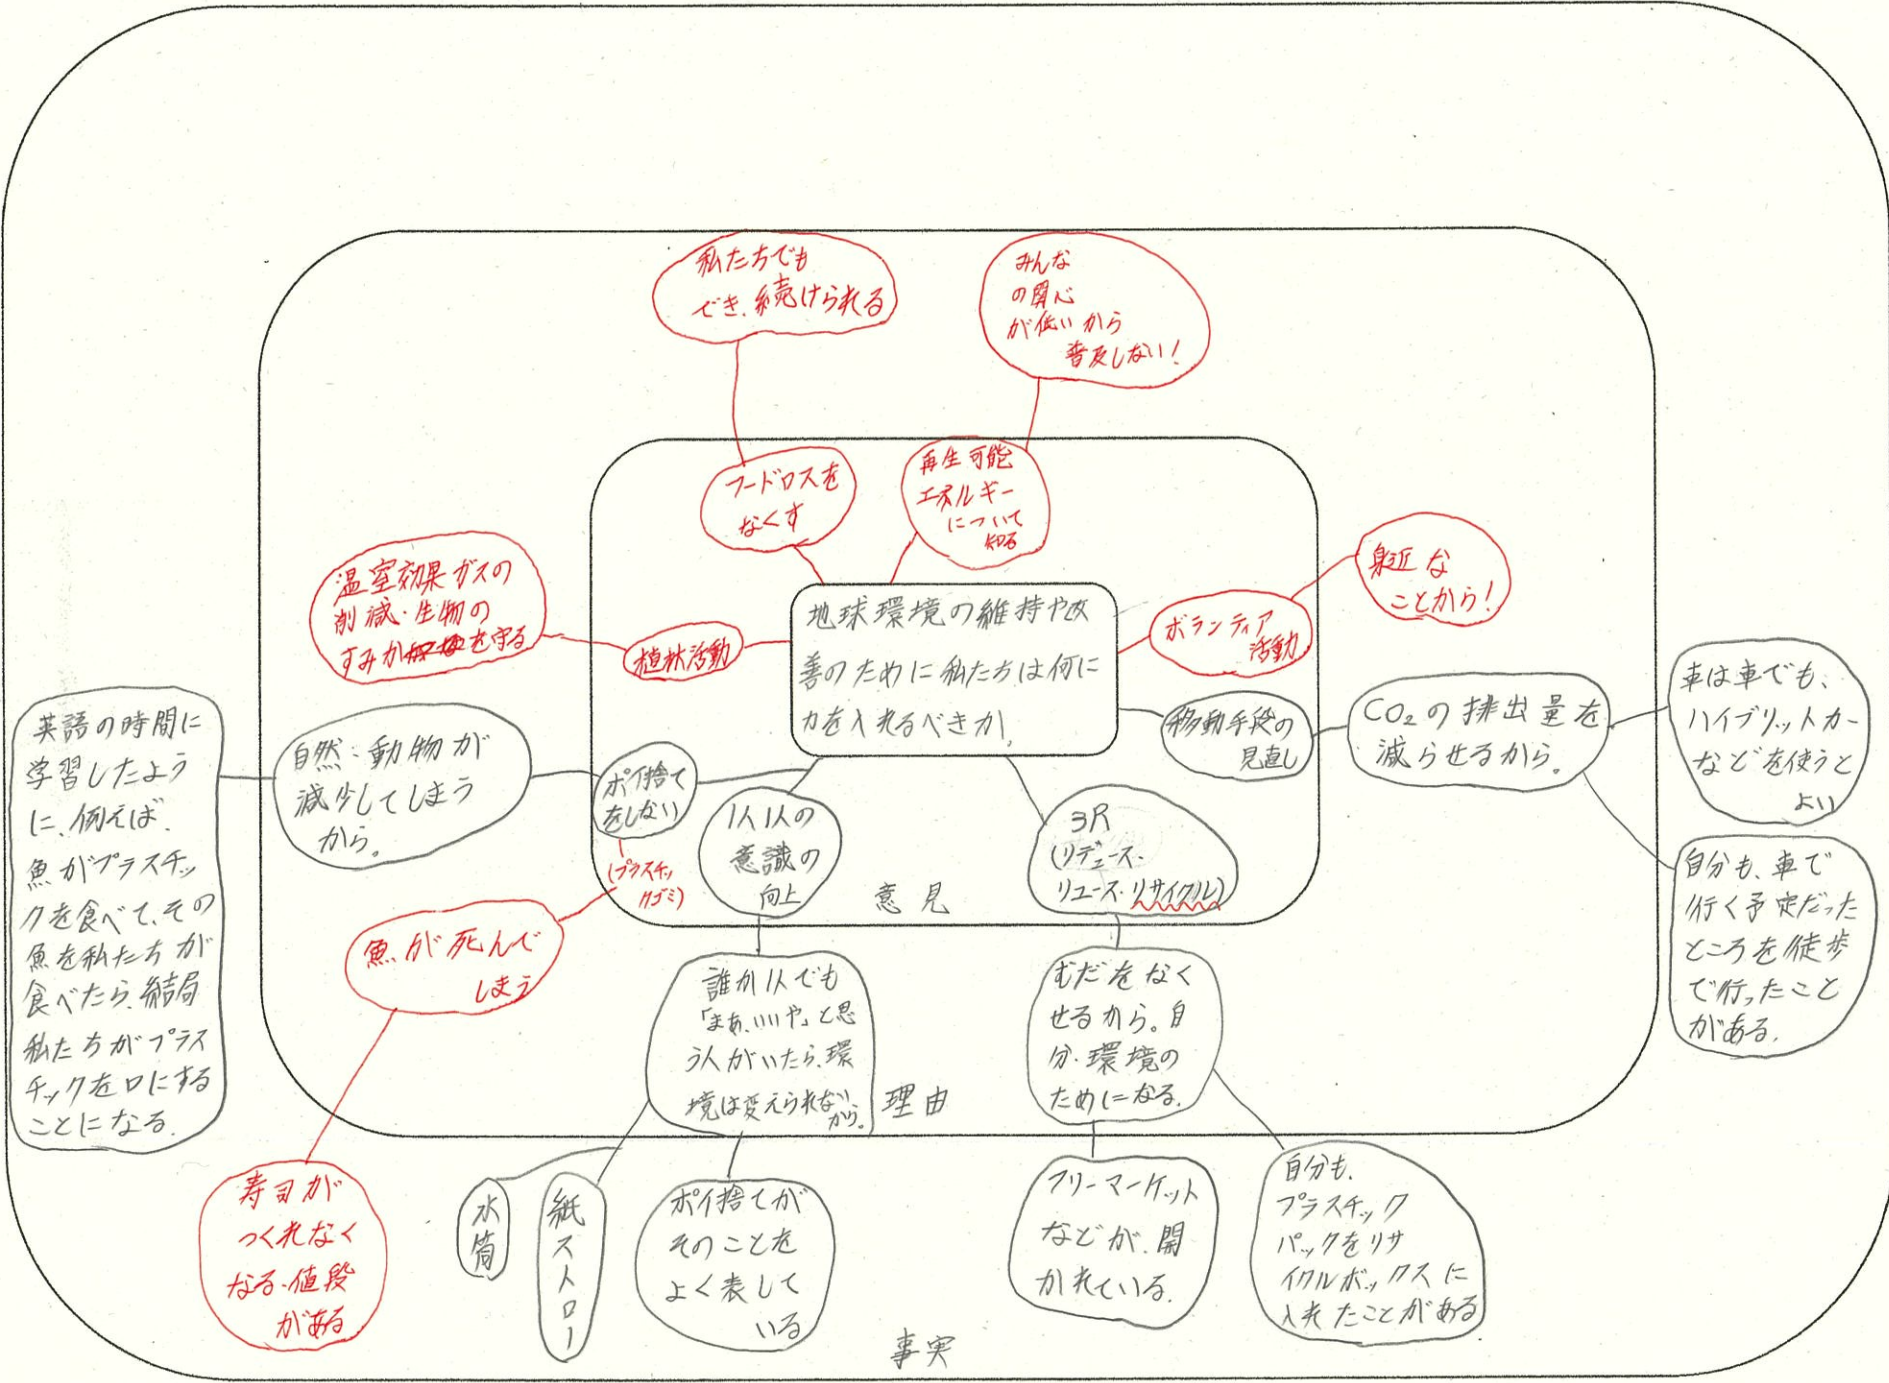 私たちでも
でき、続けられる
みんな
の関心
が低いから
普及しない!
フードロスを
なくす
再生可能
エネルギー
について
知る
温室効果ガスの
削減・生物の
すみかを守る
植林活動
地球環境の維持や改
善のために私たちは何に
力を入れるべきか。
ボランティア
活動
身近な
ことから!
移動手段の
見直し
CO₂の排出量を
減らせるから。
車は車でも、
ハイブリットカー
などを使うと
よい
自分も、車で
行く予定だった
ところを徒歩
で行ったこと
がある。
英語の時間に
学習したよう
に、例えば、
魚がプラスチッ
クを食べて、その
魚を私たちが
食べたら、結局
私たちがプラス
チックを口にする
ことになる。
自然・動物が
減少してしまう
から。
ポイ捨て
をしない
(プラスチッ
クゴミ)
魚が死んで
しまう
寿司が
つくれなく
なる・値段
がある
1人1人の
意識の
向上
意見
3R
(リデュース・
リユース・リサイクル)
誰か1人でも
「まあ、いいや」と思
う人がいたら、環
境は変えられない
から。
理由
むだをなく
せるから。自
分・環境の
ためになる。
水筒
紙ストロー
ポイ捨てが
そのことを
よく表して
いる
フリーマーケット
などが、開
かれている。
自分も、
プラスチック
パックをリサ
イクルボックスに
入れたことがある
事実